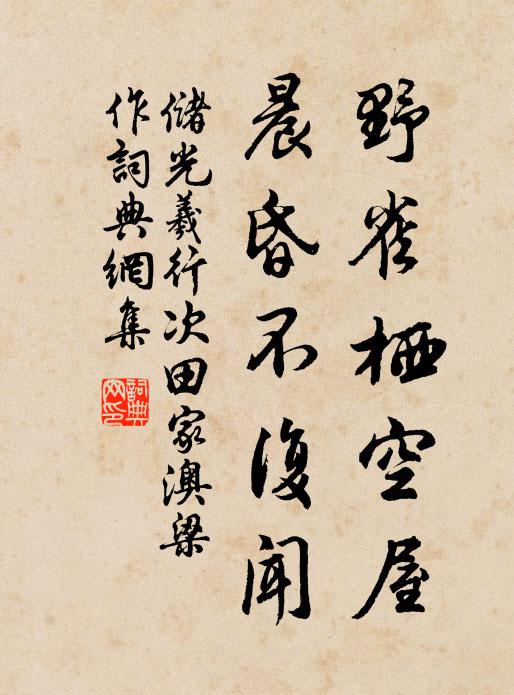 野雀栖空屋
晨昏不復聞
儲光羲行次田家澳梁
作詞典網集
詞典網印